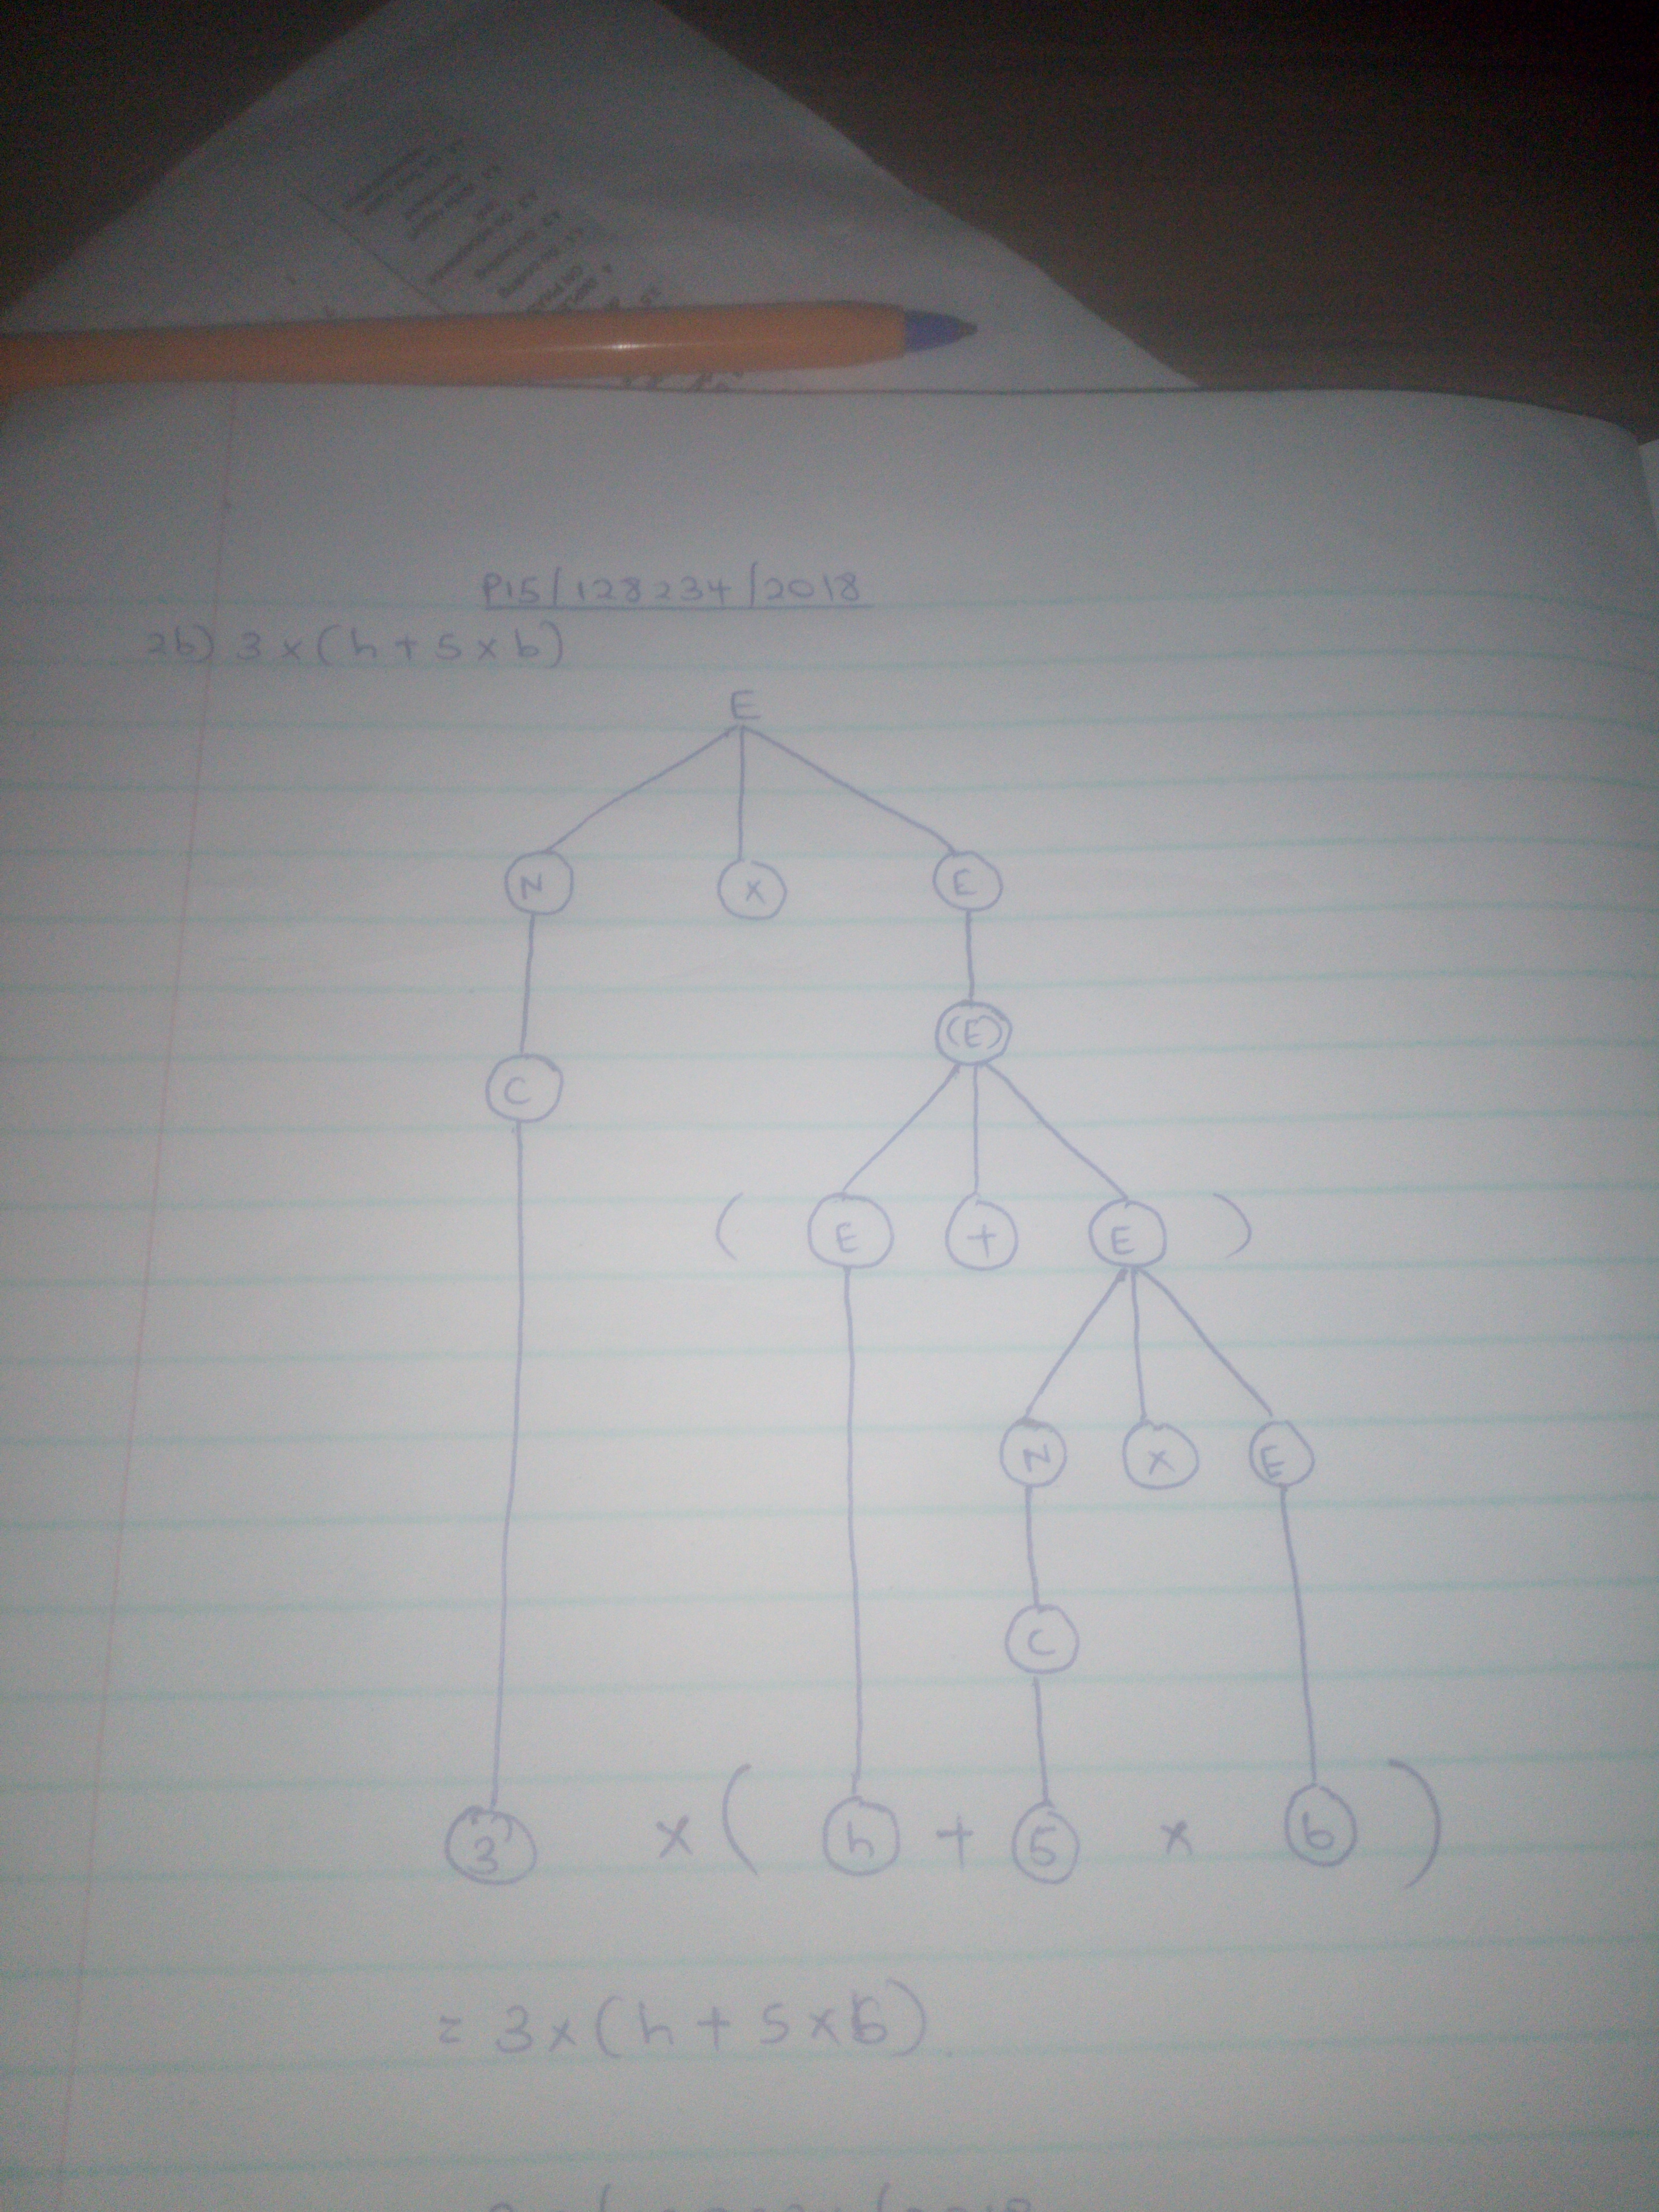 P15/128234/2018
2b) 3 x (h + 5 x b)
E
N x E
(E)
C
( E + E )
N x E
C
3 x ( h + 5 x b )
= 3 x (h + 5 x b)